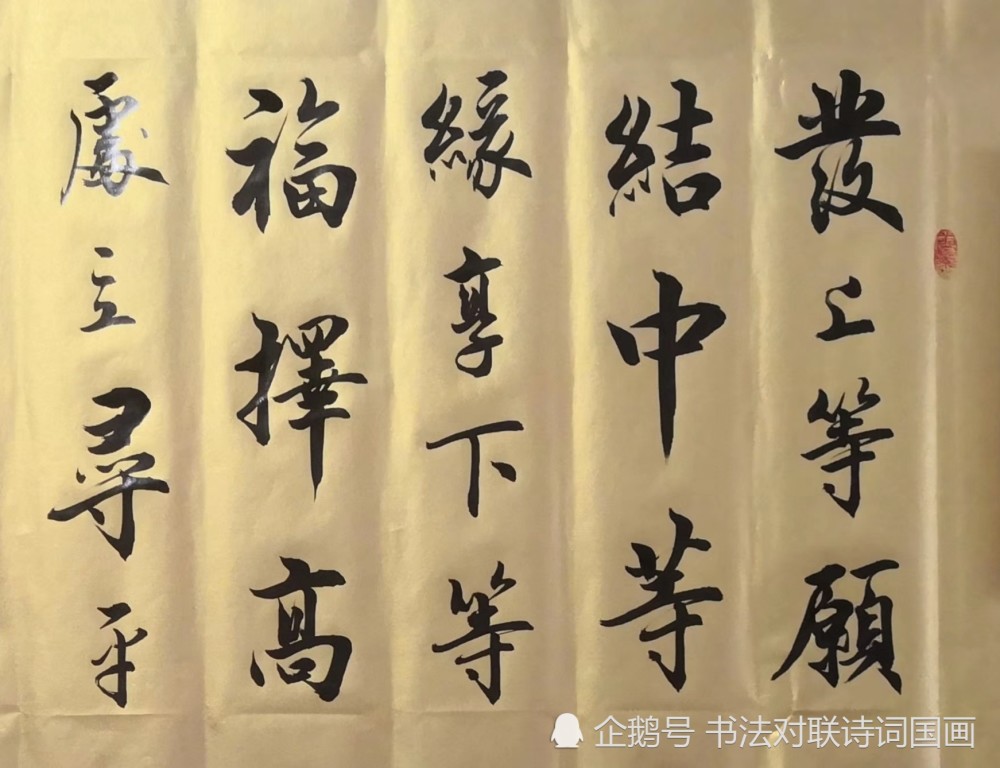 發上等願
結中等
緣享下等
福擇高
處立尋平
企鹅号 书法对联诗词国画